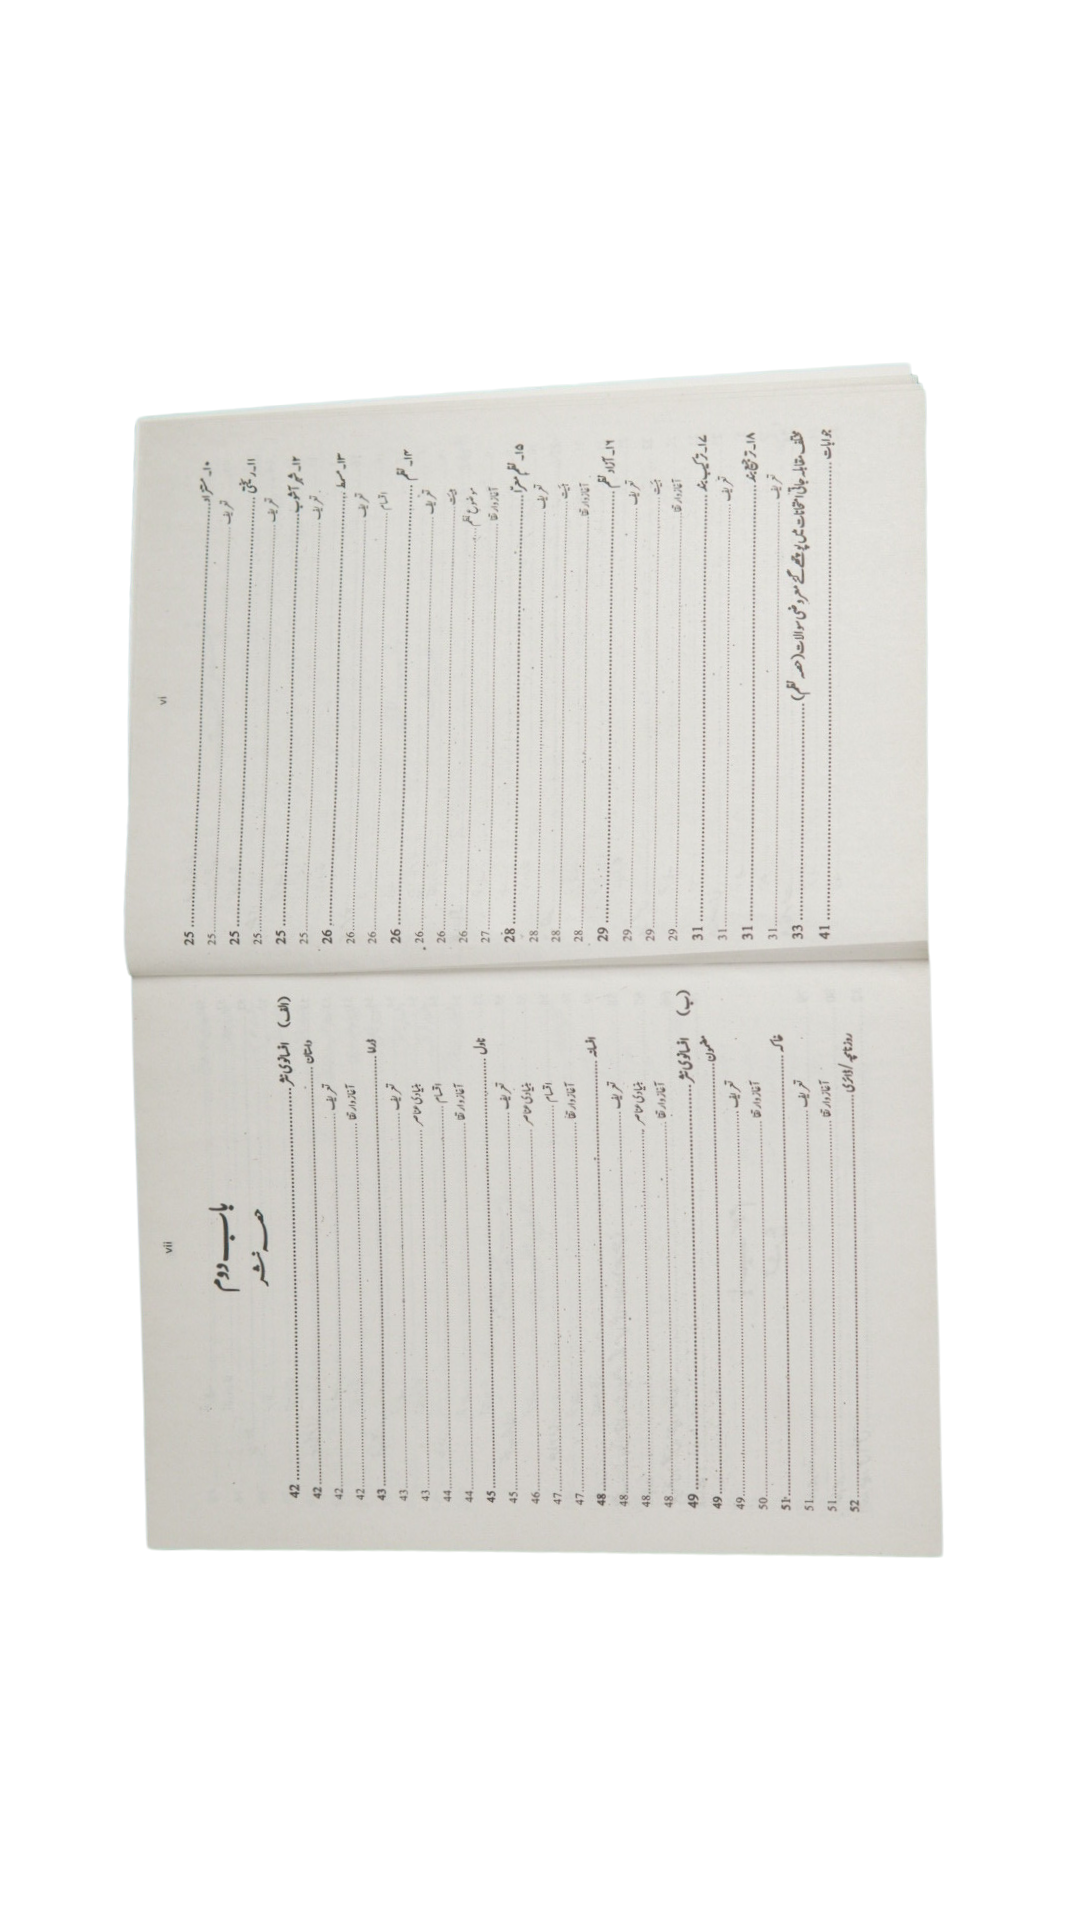 vi
۱۰۔ مستزاد 25
تعریف 25
۱۱۔ ریختی 25
تعریف 25
۱۲۔ شہر آشوب 25
تعریف 25
۱۳۔ مسمط 26
تعریف 26
اقسام 26
۱۴۔ نظم 26
تعریف 26
ہیئت 26
موضوعِ نظم 26
آغاز و ارتقا 27
۱۵۔ نظم معرّا 28
تعریف 28
ہیئت 28
آغاز و ارتقا 28
۱۶۔ آزاد نظم 29
تعریف 29
ہیئت 29
آغاز و ارتقا 29
۱۷۔ ترکیب بند 31
تعریف 31
۱۸۔ ترجیع بند 31
تعریف 31
مختلف مقابلہ جاتی امتحانات میں پوچھے گئے معروضی سوالات (حصہ نظم) 33
جوابات 41
vii
باب دوم
حصہ نثر
(الف) افسانوی نثر 42
داستان 42
تعریف 42
آغاز و ارتقا 42
ڈراما 43
تعریف 43
بنیادی عناصر 43
اقسام 44
آغاز و ارتقا 44
ناول 45
تعریف 45
بنیادی عناصر 46
اقسام 47
آغاز و ارتقا 47
افسانہ 48
تعریف 48
بنیادی عناصر 48
آغاز و ارتقا 48
(ب) افسانوی نثر 49
مضمون 49
تعریف 49
آغاز و ارتقا 50
خاکہ 51
تعریف 51
آغاز و ارتقا 51
روزنامچہ/ڈائری 52